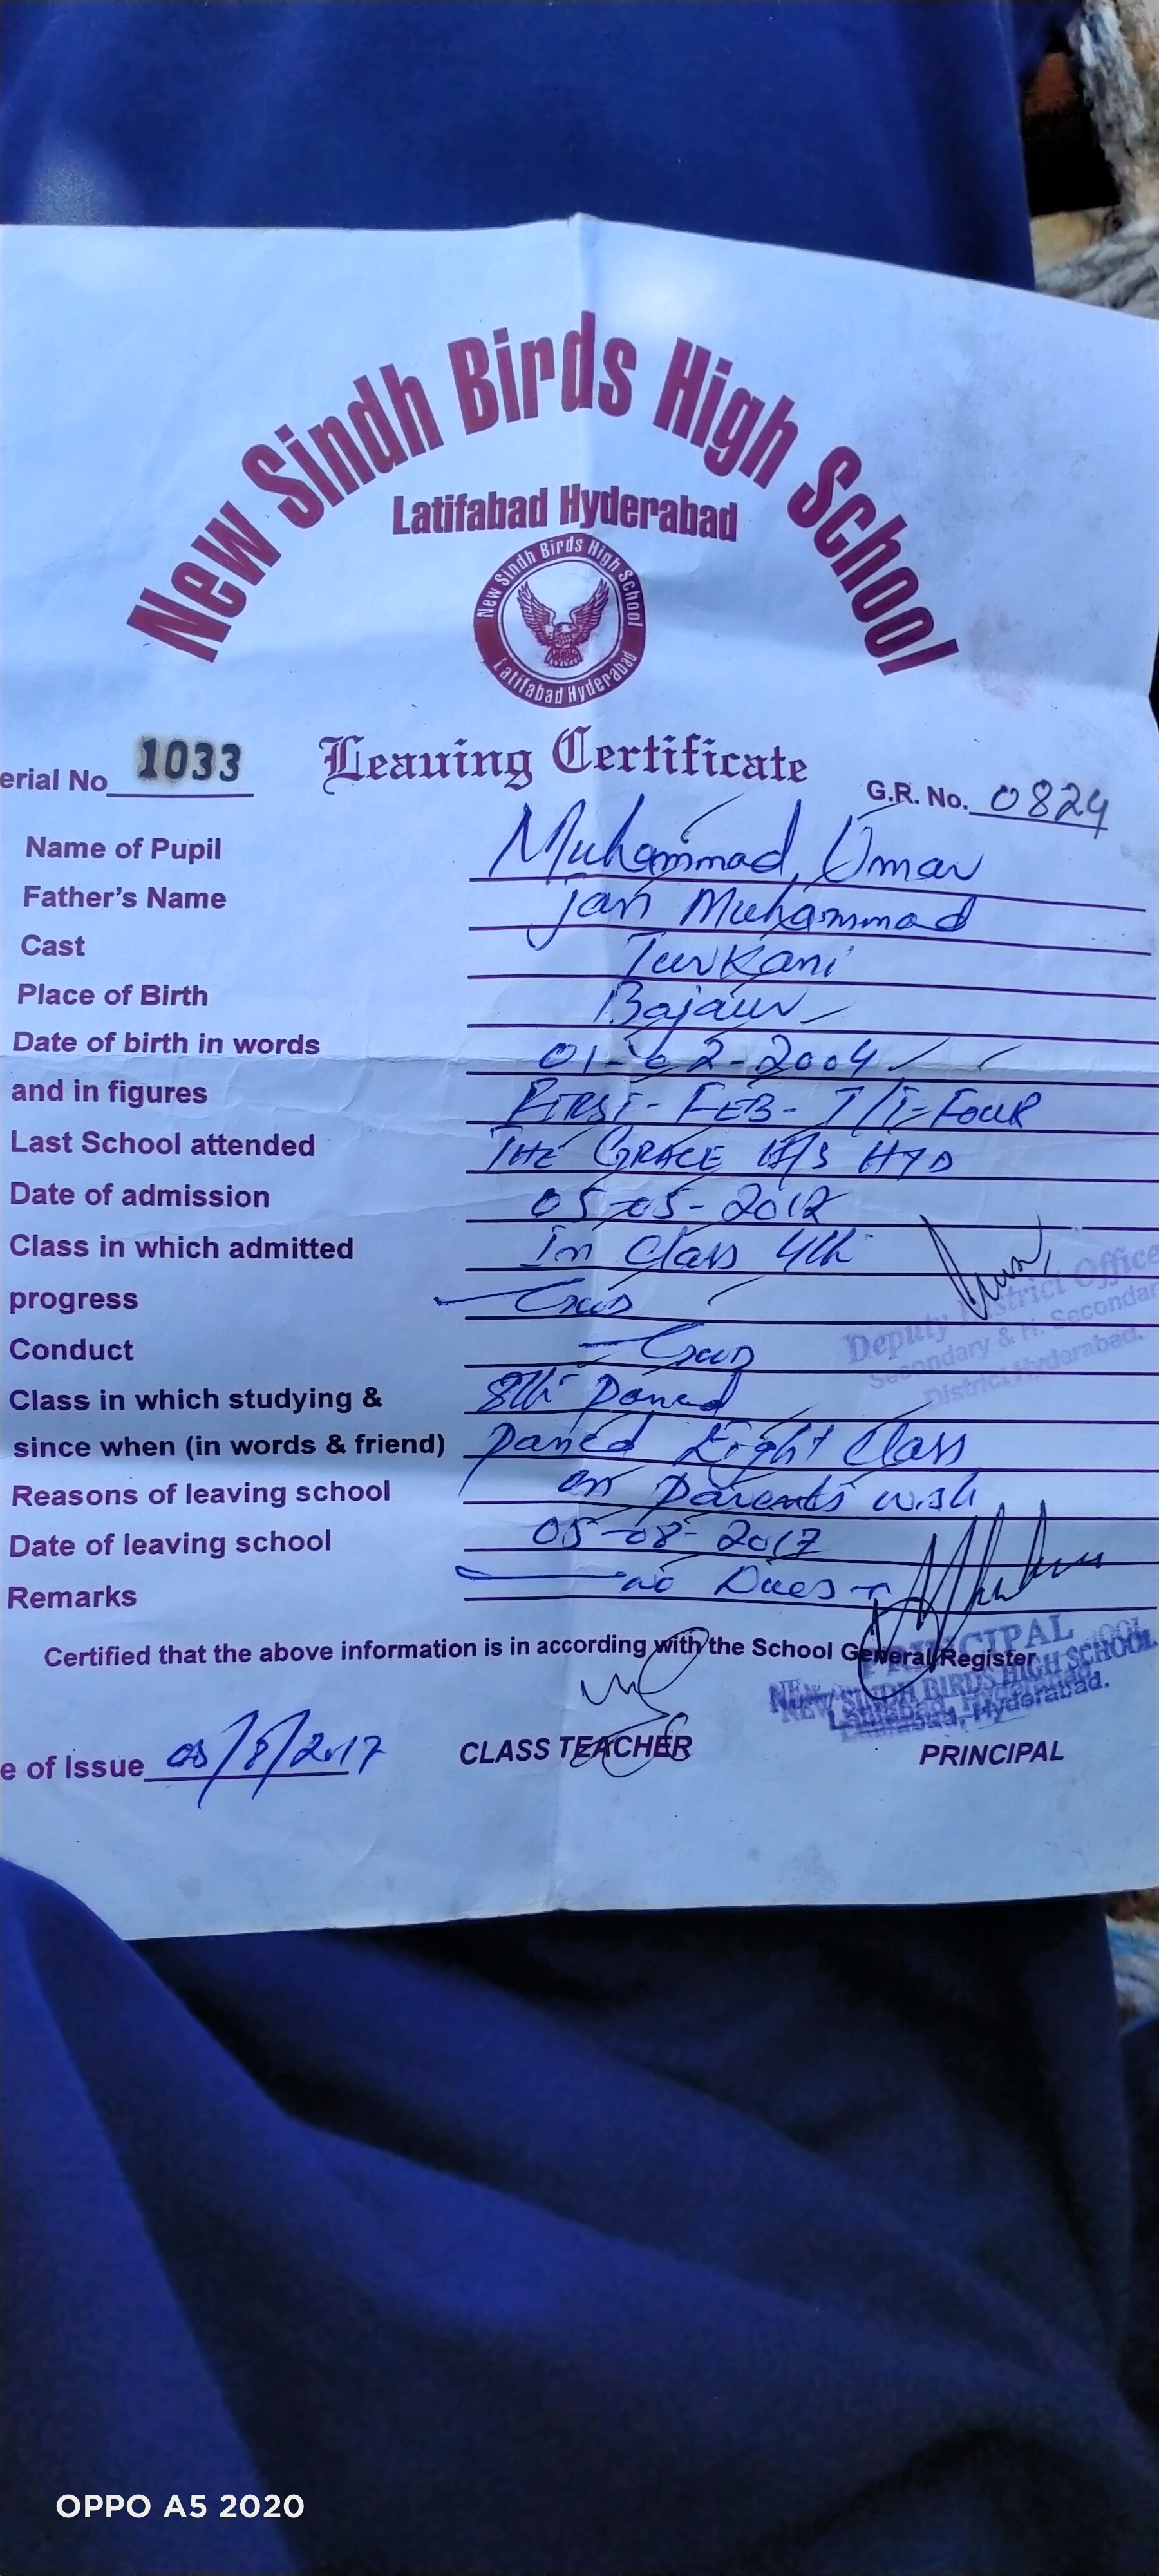 New Sindh Birds High School
Latifabad Hyderabad
New Sindh Birds High School
Latifabad Hyderabad
erial No 1033
Leaving Certificate
G.R. No. 0824
Name of Pupil Muhammad Umar
Father's Name Jan Muhammad
Cast Turkani
Place of Birth Bajaur
Date of birth in words 01-02-2004
and in figures FIRST-FEB-T/T-FOUR
Last School attended THE GRACE H/S HYD
Date of admission 05-05-2012
Class in which admitted In Class 4th
progress Good
Conduct Good
Deputy District Office
Secondary & H. Secondar
District Hyderabad.
Class in which studying & 8th passed
since when (in words & friend) passed Eight Class
Reasons of leaving school on parents wish
Date of leaving school 05-08-2017
Remarks no Dues
Certified that the above information is in according with the School General Register
PRINCIPAL
NEW SINDH BIRDS HIGH SCHOOL
Latifabad, Hyderabad.
e of Issue 05/8/2017
CLASS TEACHER
PRINCIPAL
OPPO A5 2020